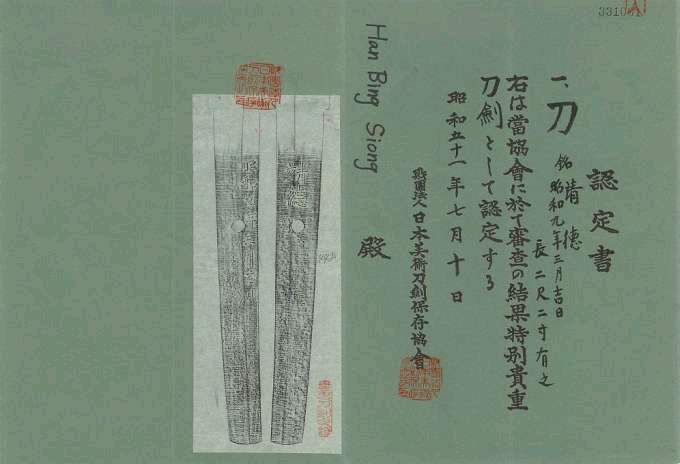 認定書
一、刀 銘 靖德
昭和九年三月吉日
長二尺二寸有之
右は當協會に於て審査の結果特別貴重
刀劍として認定する
昭和五十一年七月十日
財團法人日本美術刀劍保存協會
Han Bing Siong 殿